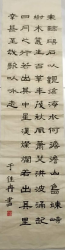 東臨碣石以觀滄海水何澹澹山島竦峙
樹木叢生百草豐茂秋風蕭瑟洪波涌起
日月之行若出其中星漢燦爛若出其里
幸甚至哉歌以咏志
于佳冉書